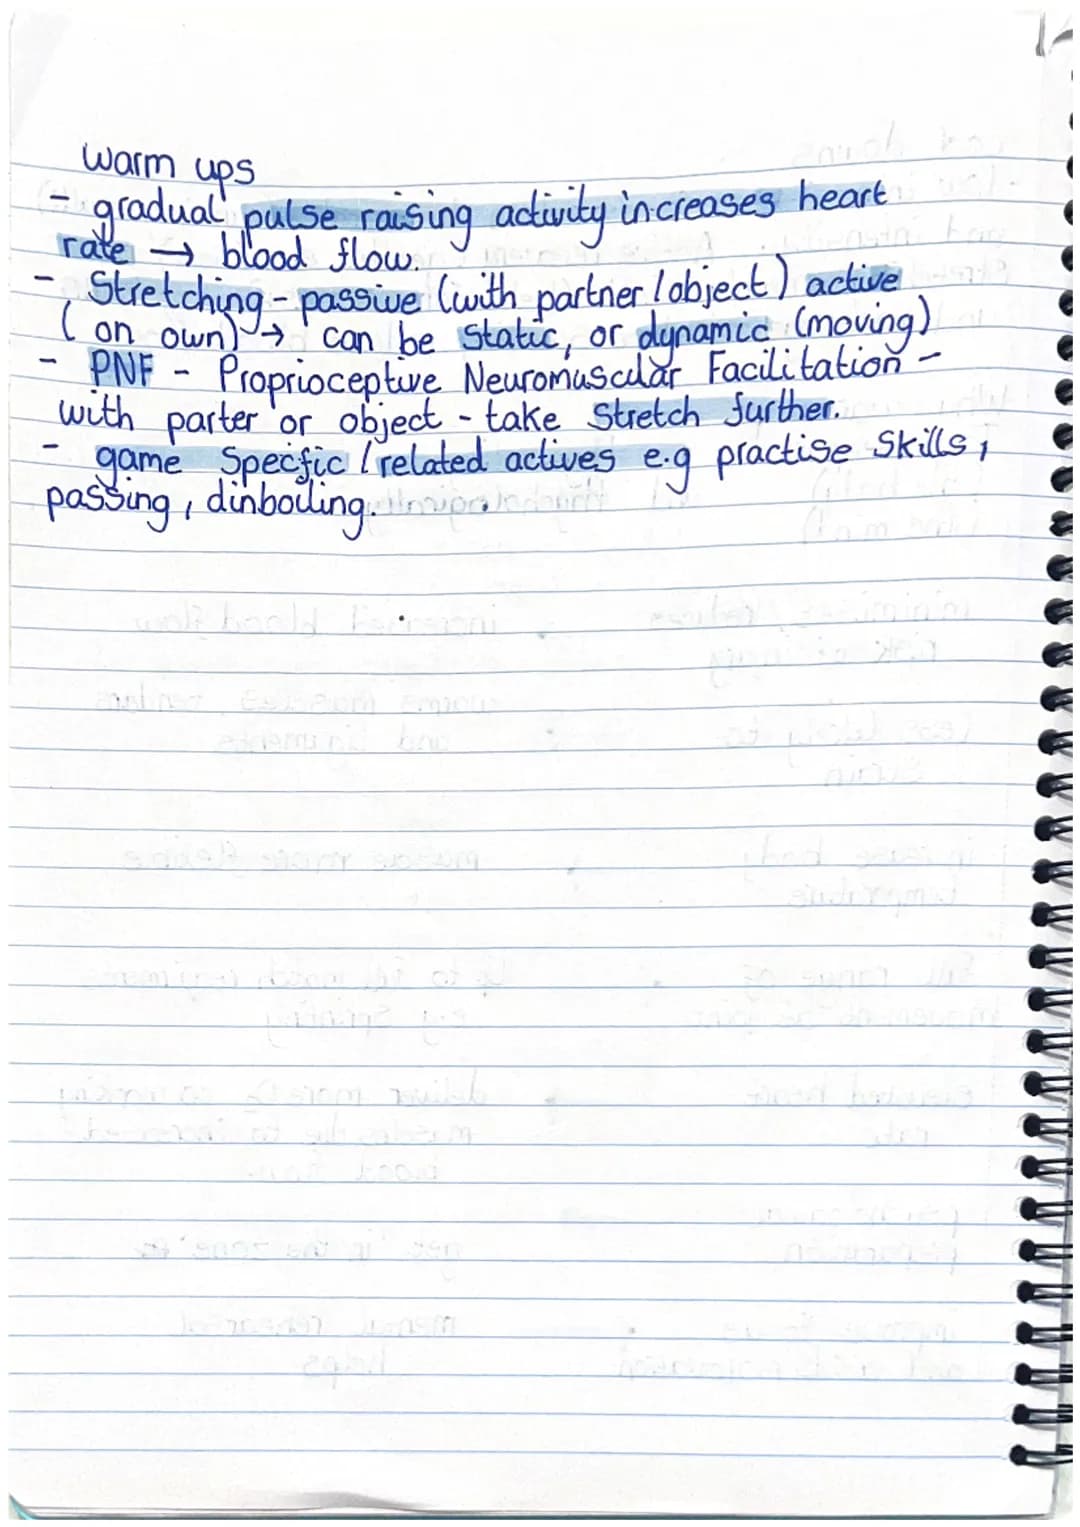 warm ups
- gradual pulse raising activity increases heart
rate → blood flow.
- Stretching - passive (with partner / object) active
( on own) → can be Static, or dynamic (moving)
- PNF - Proprioceptive Neuromuscular Facilitation -
with parter or object - take Stretch further.
- game Specfic / related actives e.g practise Skills,
passing,